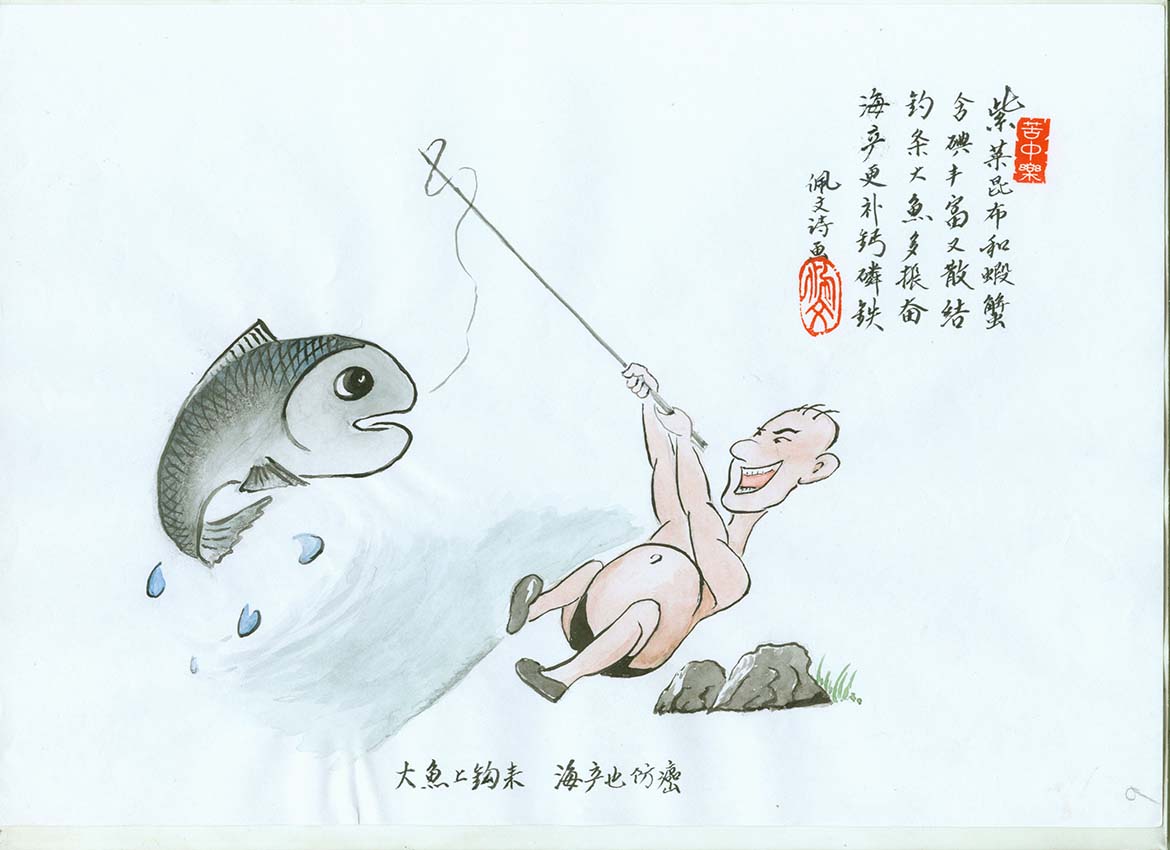 苦中樂
紫菜昆布和蝦蟹
含碘丰富又散结
钓条大魚多振奋
海产更补钙磷铁
佩文诗画
大魚上鈎来 海产也防癌